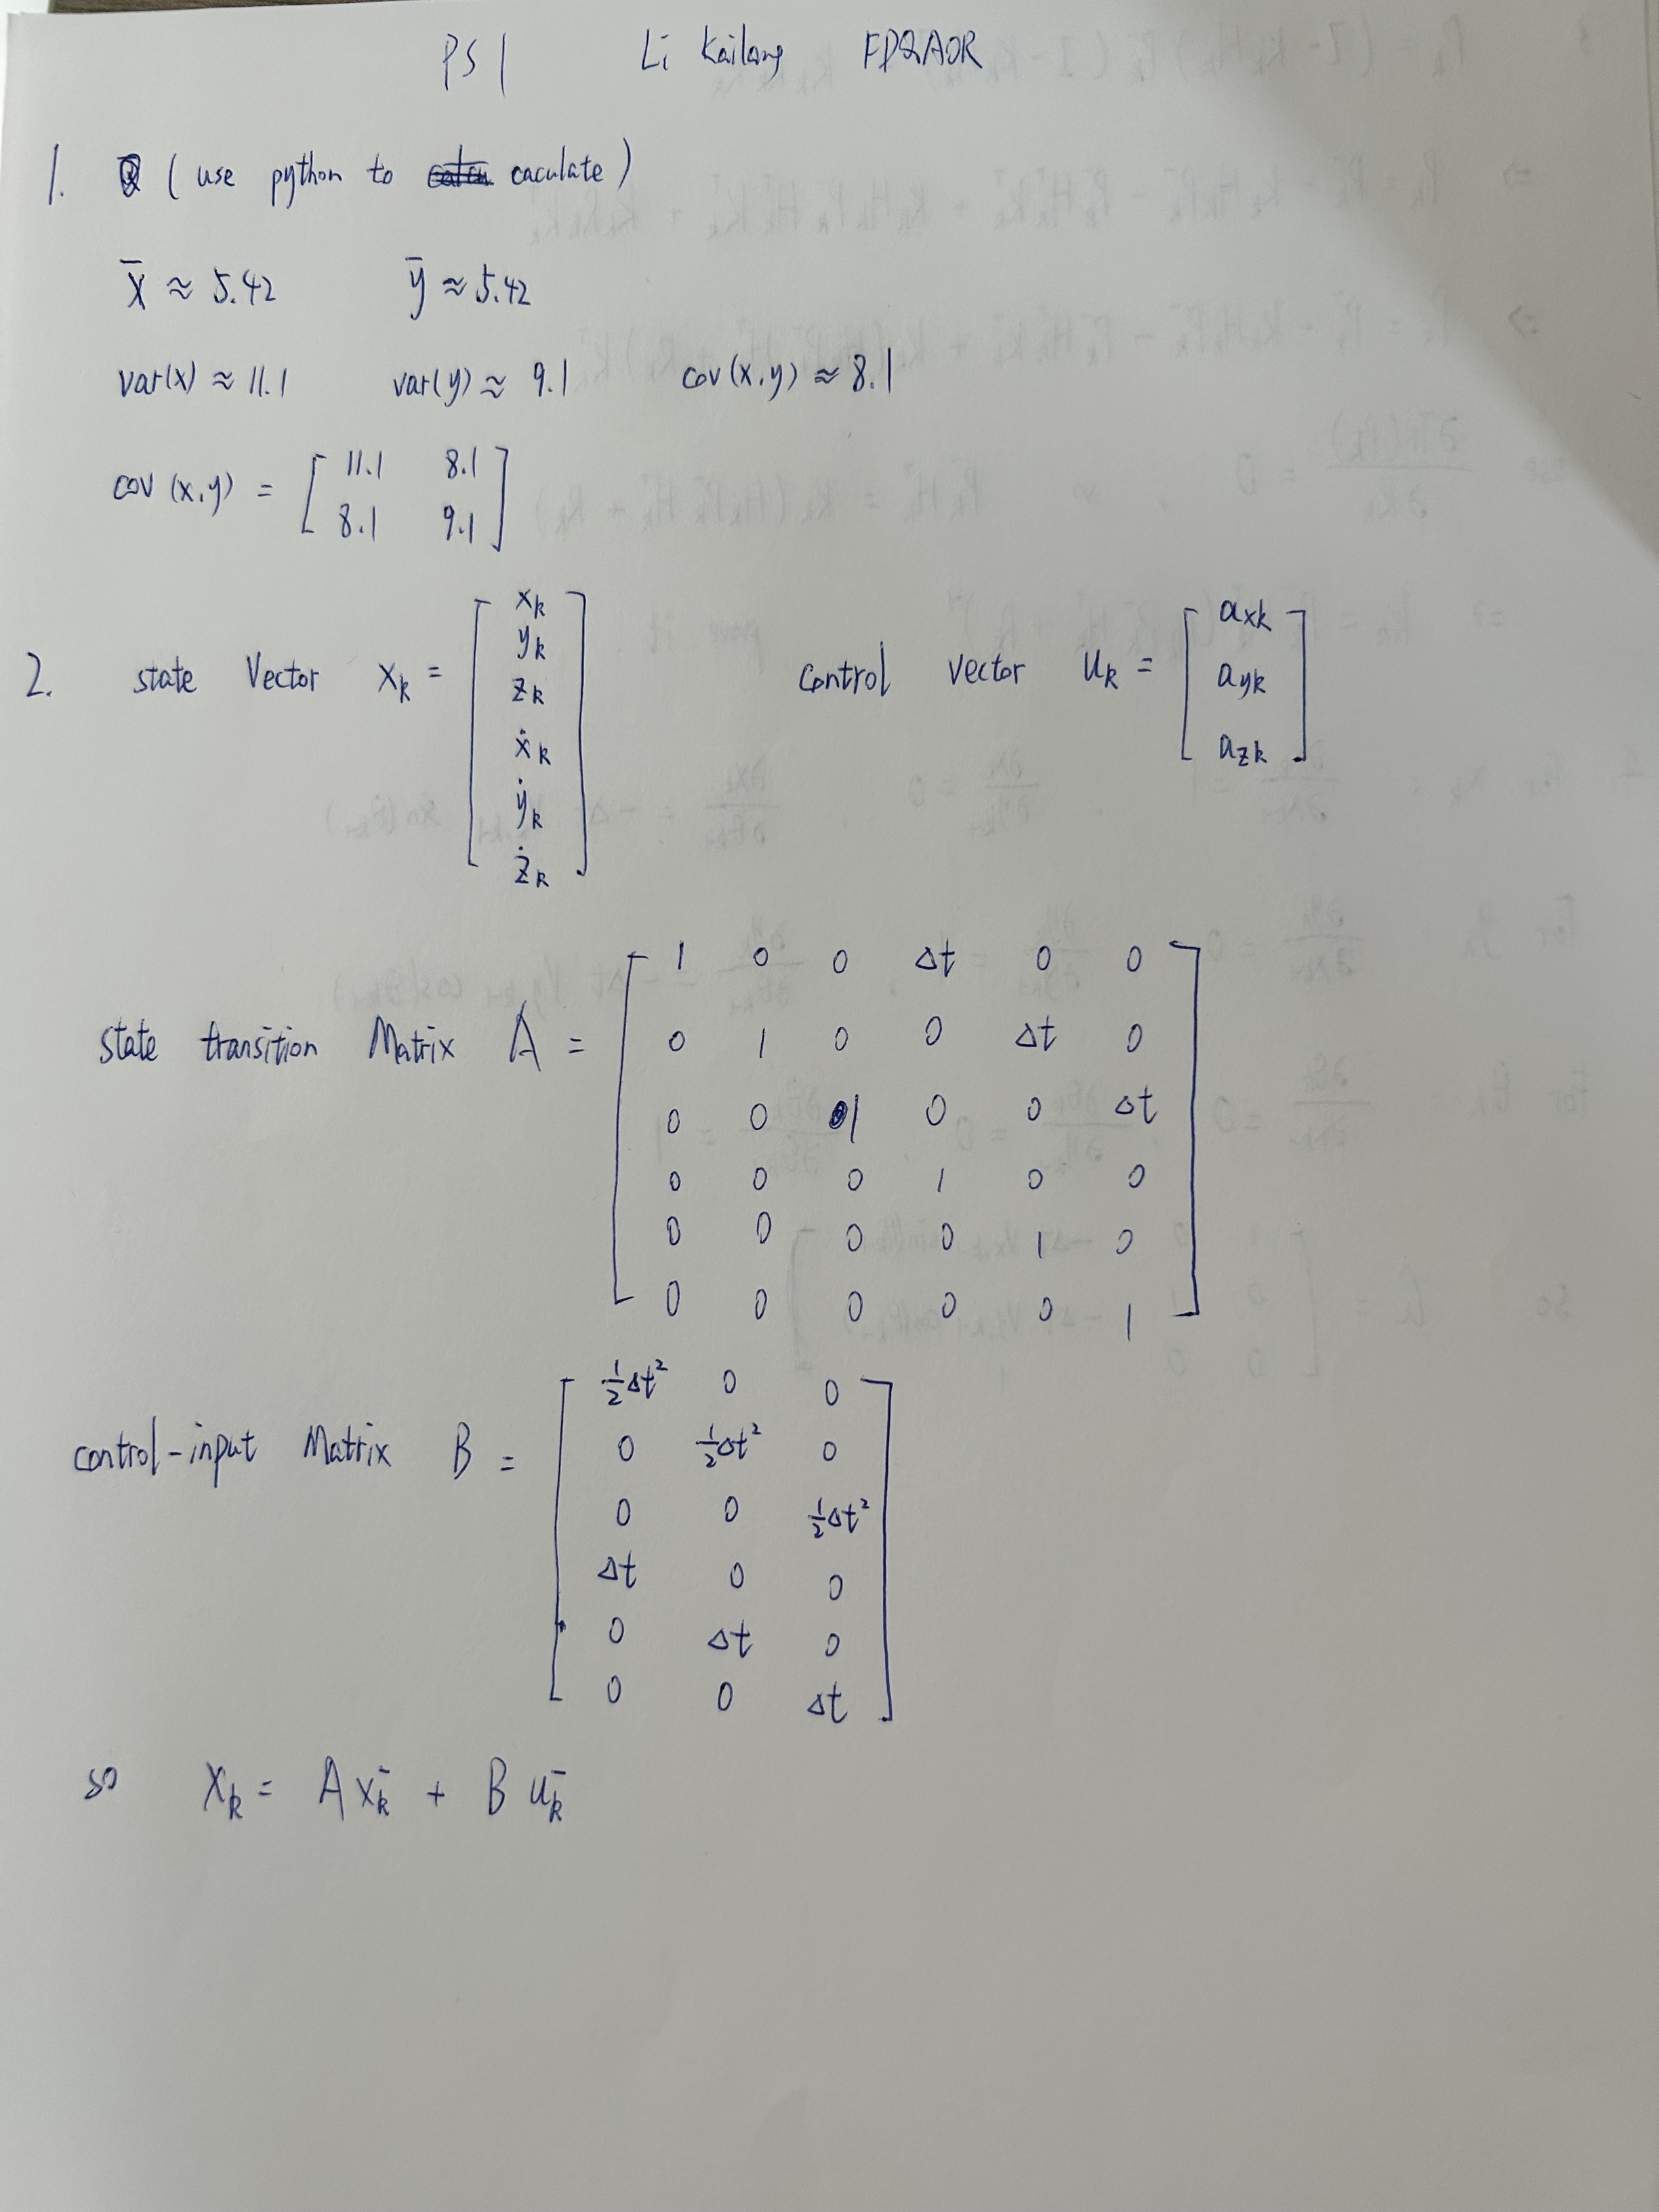 PS1 Li Kailang FD2AOR
1. (use python to caculate)
x̄ ≈ 5.42 ȳ ≈ 5.42
var(x) ≈ 11.1 var(y) ≈ 9.1 cov(x,y) ≈ 8.1
cov(x,y) = [ 11.1 8.1
8.1 9.1 ]
2. state Vector xₖ = [ xₖ
yₖ
zₖ
ẋₖ
ẏₖ
żₖ ]
control vector uₖ = [ axk
ayk
azk ]
state transition Matrix A = [ 1 0 0 Δt 0 0
0 1 0 0 Δt 0
0 0 1 0 0 Δt
0 0 0 1 0 0
0 0 0 0 1 0
0 0 0 0 0 1 ]
control-input Matrix B = [ ½Δt² 0 0
0 ½Δt² 0
0 0 ½Δt²
Δt 0 0
0 Δt 0
0 0 Δt ]
so xₖ = A xₖ⁻ + B uₖ⁻